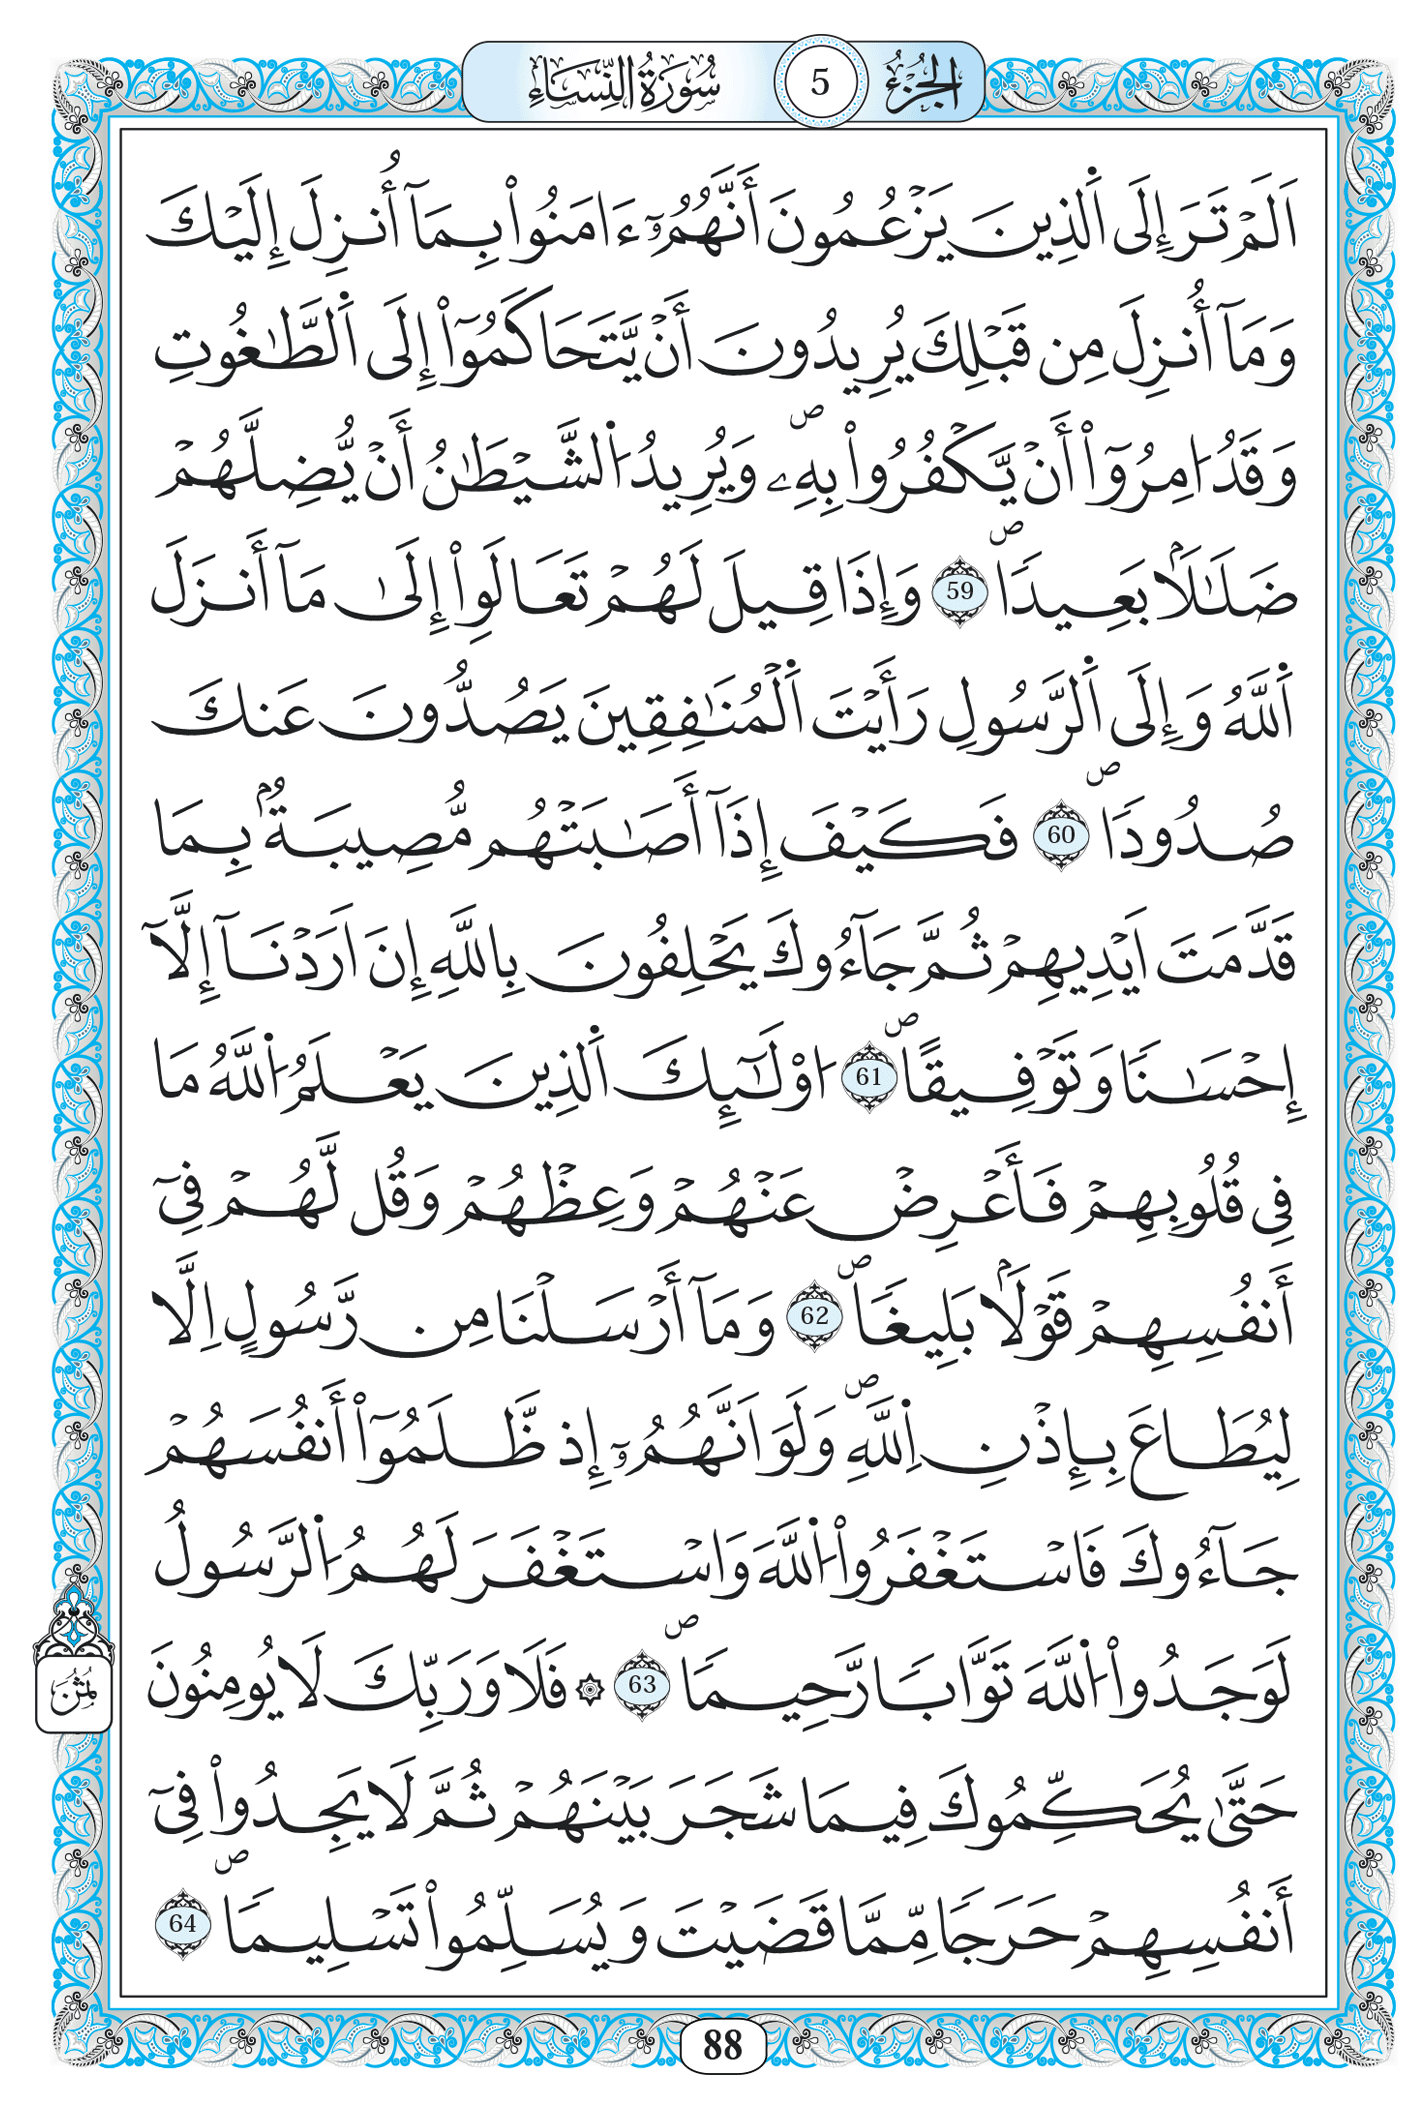 الجزء 5 سورة النساء
اَلَمْ تَرَ إِلَى اَ۬لذِينَ يَزْعُمُونَ أَنَّهُمُۥٓ ءَامَنُواْ بِمَآ أُنزِلَ إِلَيْكَ
وَمَآ أُنزِلَ مِن قَبْلِكَ يُرِيدُونَ أَنْ يَّتَحَاكَمُوٓاْ إِلَى اَ۬لطَّٰغُوتِ
وَقَدُ ا۟مِرُوٓاْ أَنْ يَّكْفُرُواْ بِهِۦۖ وَيُرِيدُ اُ۬لشَّيْطَٰنُ أَنْ يُّضِلَّهُمْ
ضَلَٰلَاۢ بَعِيداٗۖ 59 وَإِذَا قِيلَ لَهُمْ تَعَالَوِاْ إِلَىٰ مَآ أَنزَلَ
اَ۬للَّهُ وَإِلَى اَ۬لرَّسُولِ رَأَيْتَ اَ۬لْمُنَٰفِقِينَ يَصُدُّونَ عَنكَ
صُدُوداٗۖ 60 فَكَيْفَ إِذَآ أَصَٰبَتْهُم مُّصِيبَةُۢ بِمَا
قَدَّمَتَ اَيْدِيهِمْ ثُمَّ جَآءُوكَ يَحْلِفُونَ بِاللَّهِ إِنَ اَرَدْنَآ إِلَّآ
إِحْسَٰناٗ وَتَوْفِيقاًۖ 61 ا۟وْلَٰٓئِكَ اَ۬لذِينَ يَعْلَمُ اُ۬للَّهُ مَا
فِي قُلُوبِهِمْ فَأَعْرِضْ عَنْهُمْ وَعِظْهُمْ وَقُل لَّهُمْ فِيٓ
أَنفُسِهِمْ قَوْلَاۢ بَلِيغاٗۖ 62 وَمَآ أَرْسَلْنَا مِن رَّسُولٍ اِلَّا
لِيُطَاعَ بِإِذْنِ اِ۬للَّهِۖ وَلَوَ اَنَّهُمُۥٓ إِذ ظَّلَمُوٓاْ أَنفُسَهُمْ
جَآءُوكَ فَاسْتَغْفَرُواْ اُ۬للَّهَ وَاسْتَغْفَرَ لَهُمُ اُ۬لرَّسُولُ
لَوَجَدُواْ اُ۬للَّهَ تَوَّاباٗ رَّحِيماٗۖ 63 ۞ فَلَا وَرَبِّكَ لَا يُومِنُونَ
حَتَّىٰ يُحَكِّمُوكَ فِيمَا شَجَرَ بَيْنَهُمْ ثُمَّ لَا يَجِدُواْ فِيٓ
أَنفُسِهِمْ حَرَجاٗ مِّمَّا قَضَيْتَ وَيُسَلِّمُواْ تَسْلِيماٗۖ 64
ثُمُن
88